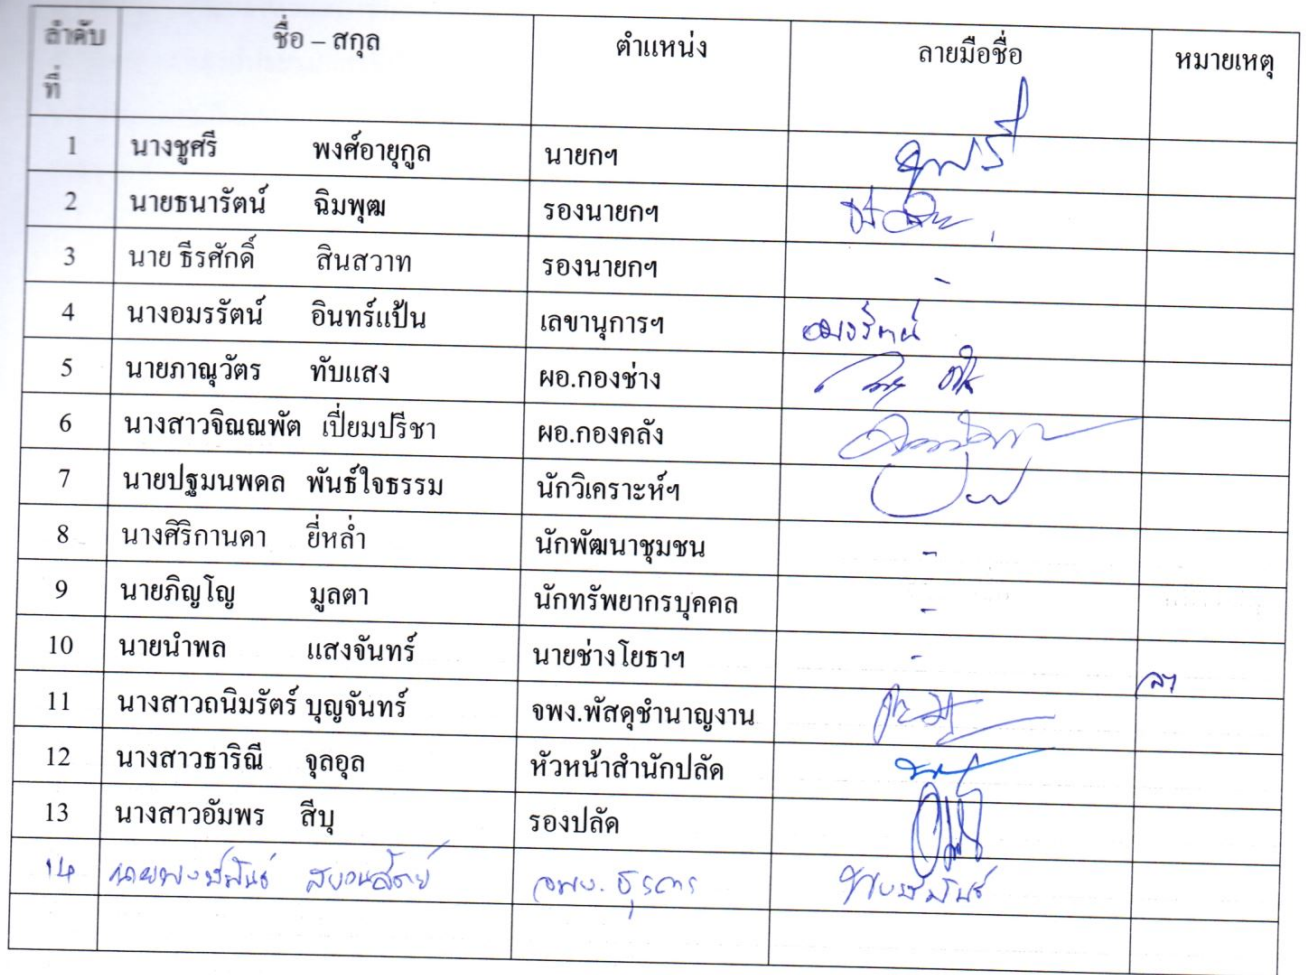 ลำดับ ชื่อ – สกุล ตำแหน่ง ลายมือชื่อ หมายเหตุ
ที่
1 นางชูศรี พงศ์อายุกูล นายกฯ
2 นายธนารัตน์ ฉิมพุฒ รองนายกฯ
3 นาย ธีรศักดิ์ สินสวาท รองนายกฯ -
4 นางอมรรัตน์ อินทร์แป้น เลขานุการฯ อมรรัตน์
5 นายภาณุวัตร ทับแสง ผอ.กองช่าง
6 นางสาวจิณณพัต เปี่ยมปรีชา ผอ.กองคลัง
7 นายปฐมนพดล พันธ์ใจธรรม นักวิเคราะห์ฯ
8 นางศิริกานดา ยี่หล่ำ นักพัฒนาชุมชน -
9 นายภิญโญ มูลตา นักทรัพยากรบุคคล -
10 นายนำพล แสงจันทร์ นายช่างโยธาฯ - ลา
11 นางสาวถนิมรัตร์ บุญจันทร์ จพง.พัสดุชำนาญงาน
12 นางสาวธาริณี จุลอุล หัวหน้าสำนักปลัด
13 นางสาวอัมพร สีบุ รองปลัด
14 นายพงษ์พันธ์ จพง. ธุรการ พงษ์พันธ์